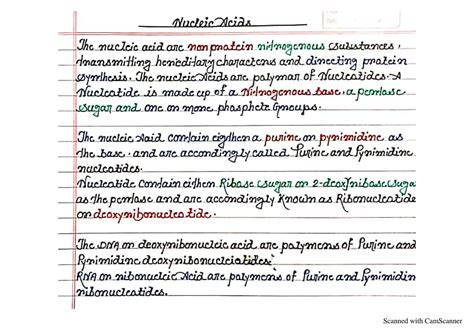 Nucleic Acids
The nucleic acid are non protein nitrogenous substances,
transmitting hereditary characters and directing protein
synthesis. The nucleic Acids are polymer of Nucleotides. A
Nucleotide is made up of a Nitrogenous base, a pentose
sugar and one or more phosphate groups.
The nucleic Acid contain either a purine or pyrimidine as
the base. and are accordingly called Purine and Pyrimidine
nucleotides.
Nucleotide contain either Ribose sugar or 2-deoxyribose sugar
as the pentose and are accordingly known as Ribonucleotide
or deoxyribonucleotide.
The DNA or deoxyribonucleic acid are polymers of Purine and
Pyrimidine deoxyribonucleiotides.
RNA or ribonucleic Acid are polymers of Purine and Pyrimidin
ribonucleotides.
Scanned with CamScanner